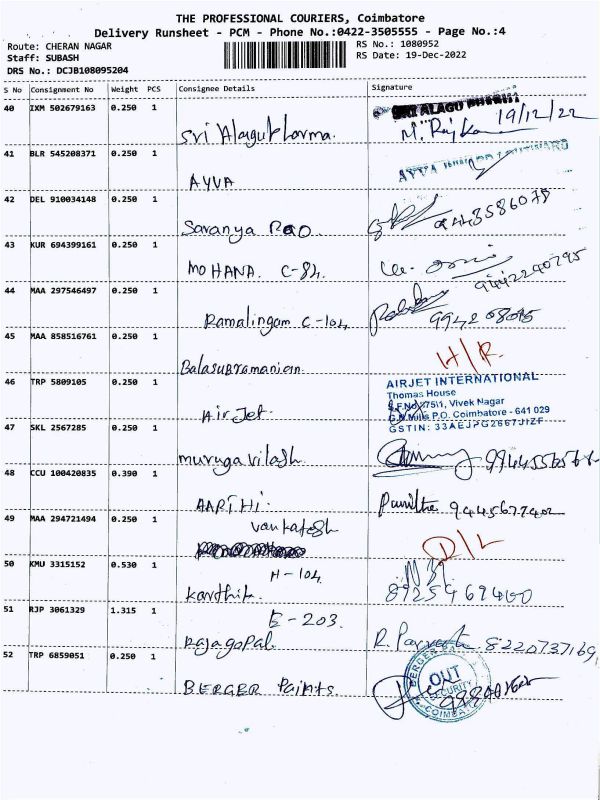 THE PROFESSIONAL COURIERS, Coimbatore
Delivery Runsheet - PCM - Phone No.:0422-3505555 - Page No.:4
Route: CHERAN NAGAR
Staff: SUBASH
DRS No.: DCJB108095204
RS No.: 1080952
RS Date: 19-Dec-2022
S No Consignment No Weight PCS Consignee Details Signature
40 IXM 502679163 0.250 1
Sri Alagu
SRI ALAGU
M. 19/12/22
41 BLR 545208371 0.250 1
AYVA
AYVA
42 DEL 910034148 0.250 1
Saranya Rao
9443586078
43 KUR 694399161 0.250 1
MOHANA. C-84.
9442240795
44 MAA 297546497 0.250 1
Ramalingam C-104
45 MAA 858516761 0.250 1
Balasubramaniam
H/R.
46 TRP 5809105 0.250 1
Air Jet.
AIRJET INTERNATIONAL
Thomas House
Vivek Nagar
P.O. Coimbatore - 641 029
GSTIN: 33AEJPG2667J1ZF
47 SKL 2567285 0.250 1
muruga vilash
48 CCU 100420835 0.390 1
AARTHI.
49 MAA 294721494 0.250 1
Venkatesh
D/L
50 KMU 3315152 0.530 1
H-104
Karthik
51 RJP 3061329 1.315 1
E-203.
Rajagopal
R. 8220737169
52 TRP 6859051 0.250 1
BERGER Paints.
OUT
SECURITY